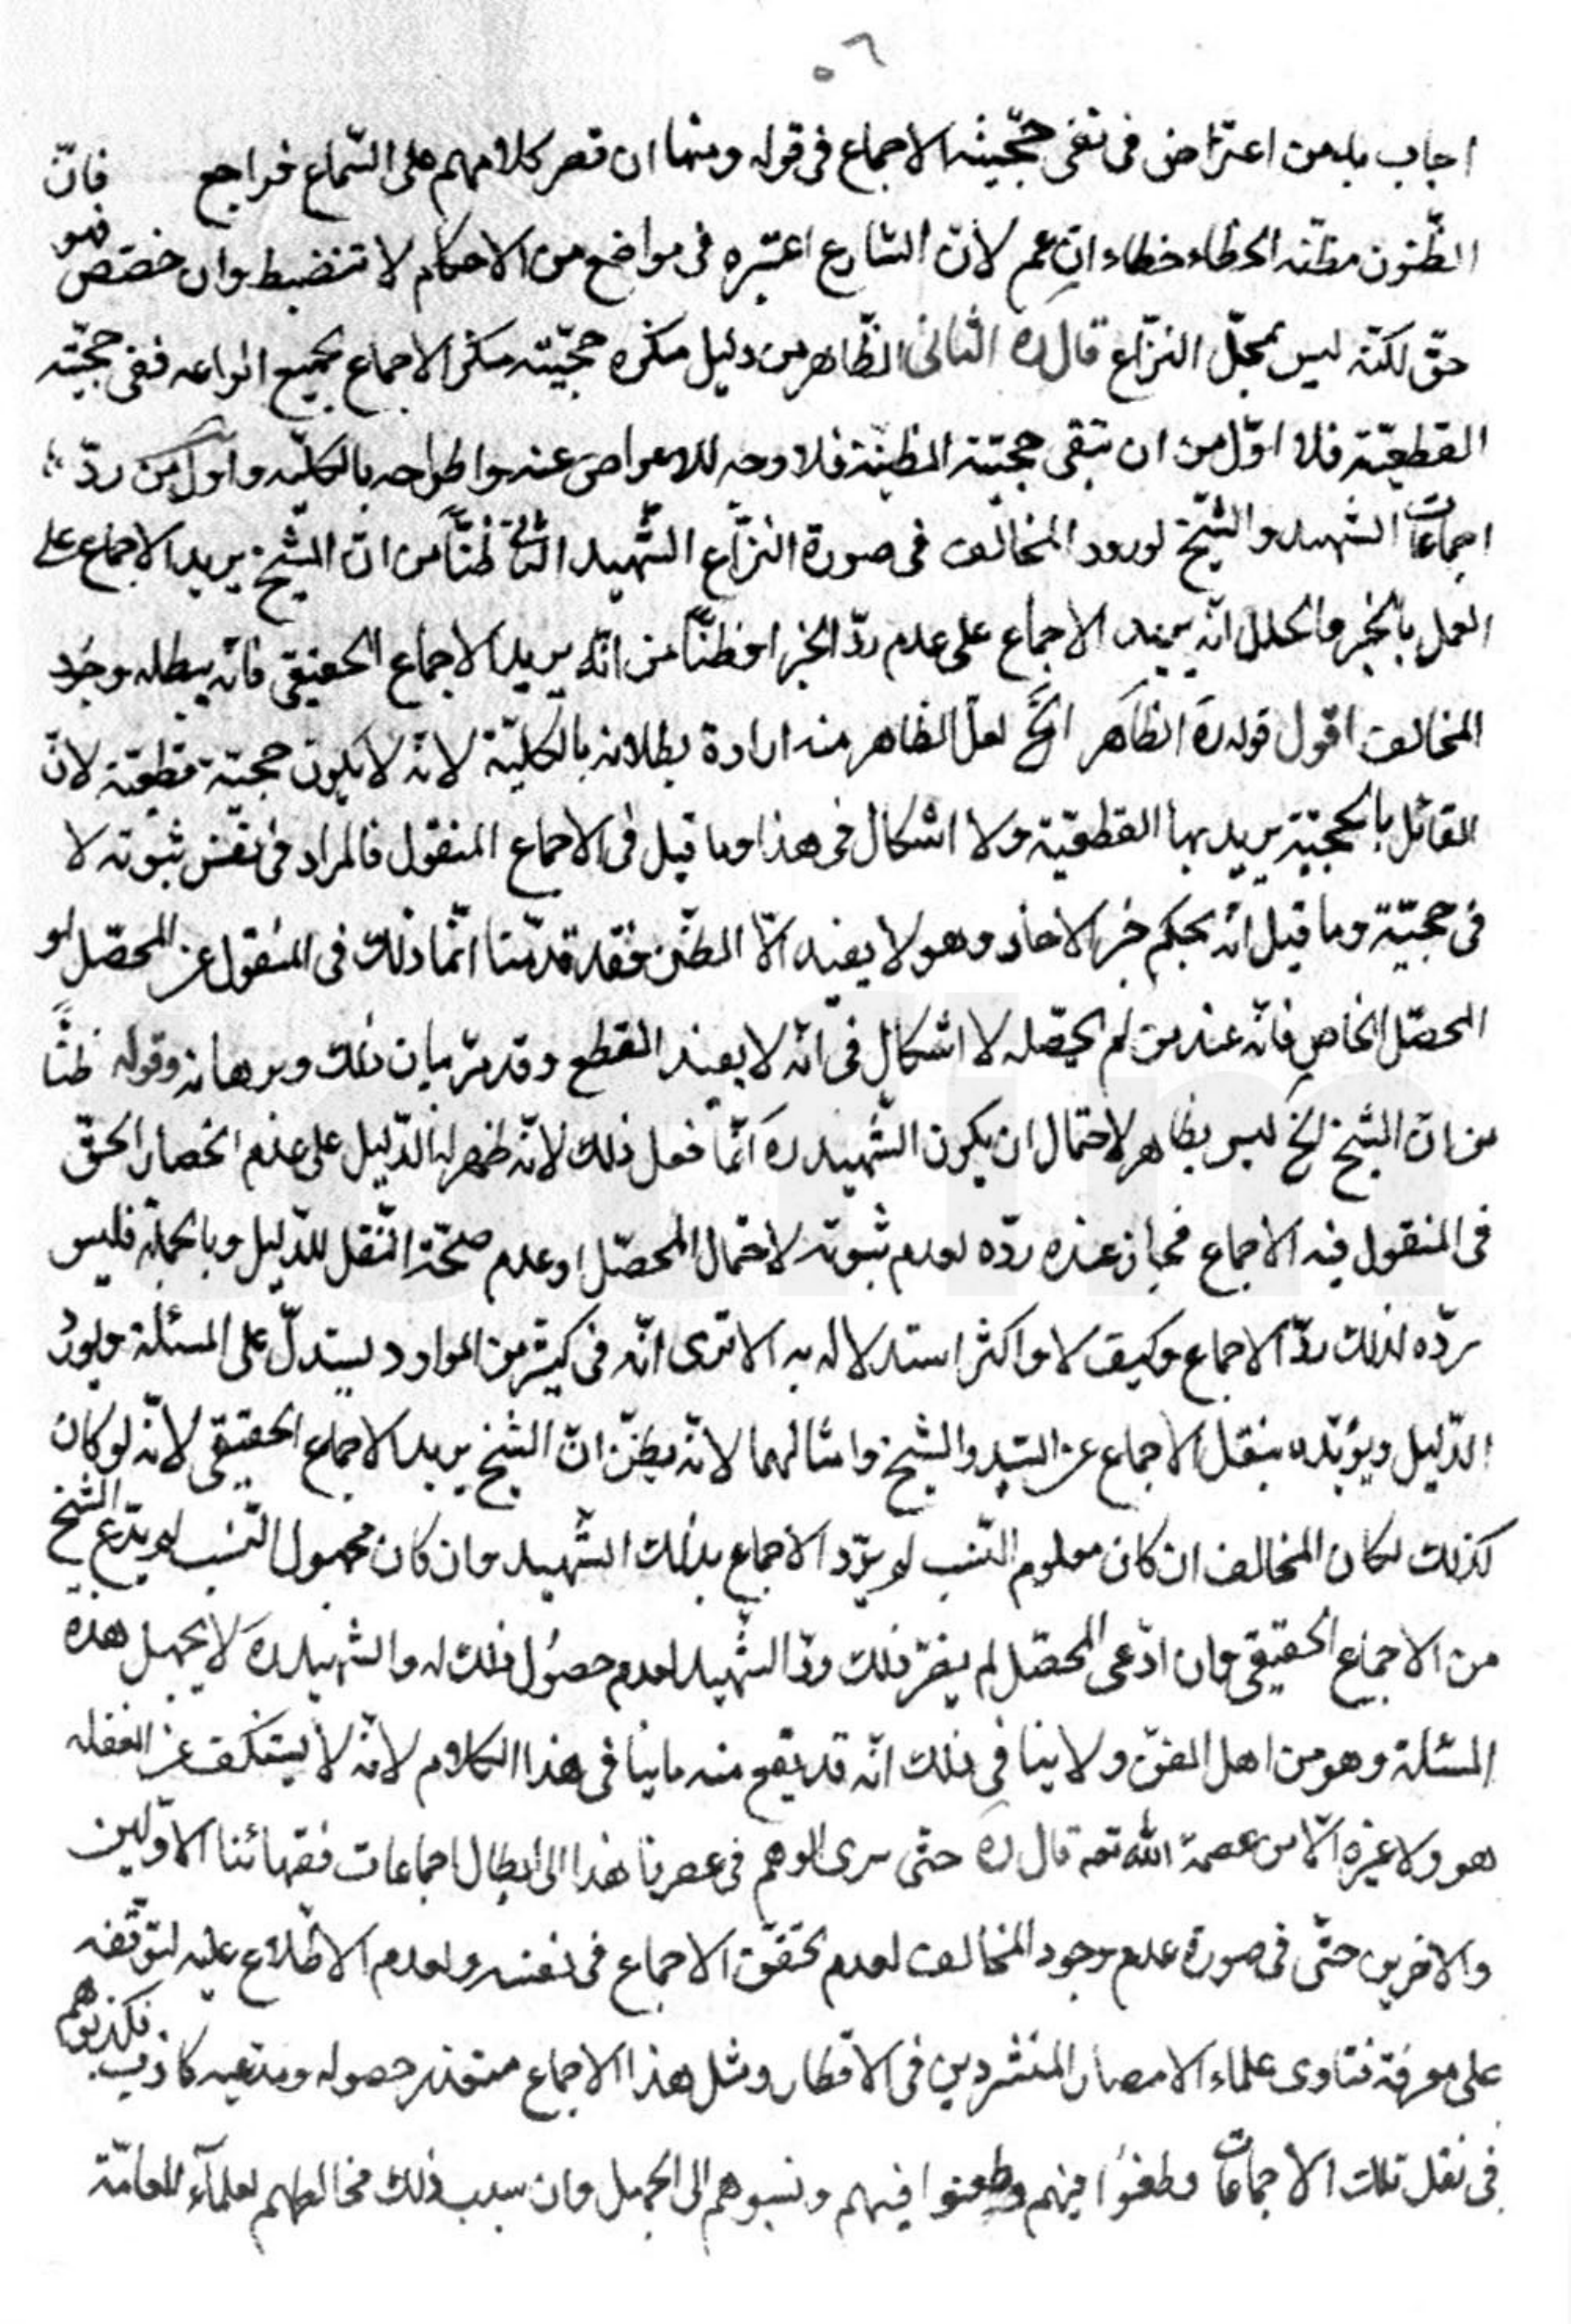 ٥٦
اجاب به من اعتراض فى نفى حجّيته الاجماع فى قوله ومنها ان قصر كلامهم على السّماع فراجع فانّ
الظّنون مظنّة الخطاء خطاء ان عمم لانّ الشارع اعتبره فى مواضع من الاحكام لا تنضبط وان خصّص فهو
حقّ لكنّه ليس بمحلّ النزّاع قال ره الثانى الظّاهر من دليل منكره حجّيته منكر الاجماع بجميع انواعه فنفى حجّيته
القطعيّة فلا اوّل من ان تبقى حجيّته الظنيّة فلا وجه للاعراض عنه واطراحه بالكليّه واوّل من ردّ
اجماعات الشهيد والشّيخ لورود المخالف فى صورة النزّاع الشّهيد الثانى ظنّاً من انّ الشّيخ يريد الاجماع على
العمل بالخبر والحال انّه يريد الاجماع على عدم ردّ الخبر او ظنّاً من انّه يريد الاجماع الحقيقى فانّه يبطله وجود
المخالف اقول قوله ره الظاهر الخ لعلّ الظاهر منه ارادة بطلانه بالكليّة لانّه لا يكون حجيّة قطعيّة لانّ
القائل بالحجيّة يريد بها القطعيّة ولا اشكال فى هذا وما قيل فى الاجماع المنقول فالمراد فى نفس ثبوته لا
فى حجيّة وما قيل انّه بحكم خبر الاحاد وهو لا يفيد الّا الظنّ فقد قدمنا انّما ذلك فى المنقول عن المحصّل او
المحصّل الخاص فانّه عند من لم يحصّله لا اشكال فى انّه لا يفيد القطع وقد مرّ بيان ذلك وبرهانه وقوله ظنّاً
من انّ الشّيخ الخ ليس بظاهر لاحتمال ان يكون الشّهيد ره انّما فعل ذلك لانّه ظهر له الدّليل على عدم انحصار الحقّ
فى المنقول فيه الاجماع فجاز عنده ردّه لعدم ثبوته لاحتمال المحصّل او عدم صحّة النّقل للدّليل وبالجملة فليس
ردّه لذلك ردّ الاجماع وكيف لا واكثر استدلاله به الا ترى انّه فى كثير من الموارد يستدلّ على المسئلة ويورد
الدّليل ويؤيّده بنقل الاجماع عن السّيد والشّيخ وامثالهما لانّه يظنّ انّ الشّيخ يريد الاجماع الحقيقى لانّه لو كان
كذلك لكان المخالف ان كان معلوم النّسب لو يردّ الاجماع بذلك الشّهيد وان كان مجهول النّسب لم يدّع الشيخ
من الاجماع الحقيقى وان ادّعى المحصّل لم يضرّ ذلك ردّ الشّهيد لعدم حصول ذلك له والشّهيد ره لا يجهل هذه
المسئلة وهو من اهل الفنّ ولا ينافى ذلك انّه قد يقع منه ما ينافى هذا الكلام لانّه لا يستنكف عن الغفله
هو ولا غيره الّا من عصمة الله تعه قال ره حتّى سرى الوهم فى عصرنا هذا الى ابطال اجماعات فقهائنا الاوّلين
والاخرين حتّى فى صورة عدم وجود المخالف لعدم تحقّق الاجماع فى نفسه ولعدم الاطّلاع عليه لتوقّفه
على معرفة فتاوى علماء الامصار المنتشرين فى الاقطار ومثل هذا الاجماع متعذر حصوله ومدّعيه كاذب فكذبوهم
فى نقل تلك الاجماعات وطعنوا فيهم وطعنوا فيهم ونسبوهم الى الجهل وان سبب ذلك مخالطتهم لعلمآء العامّة